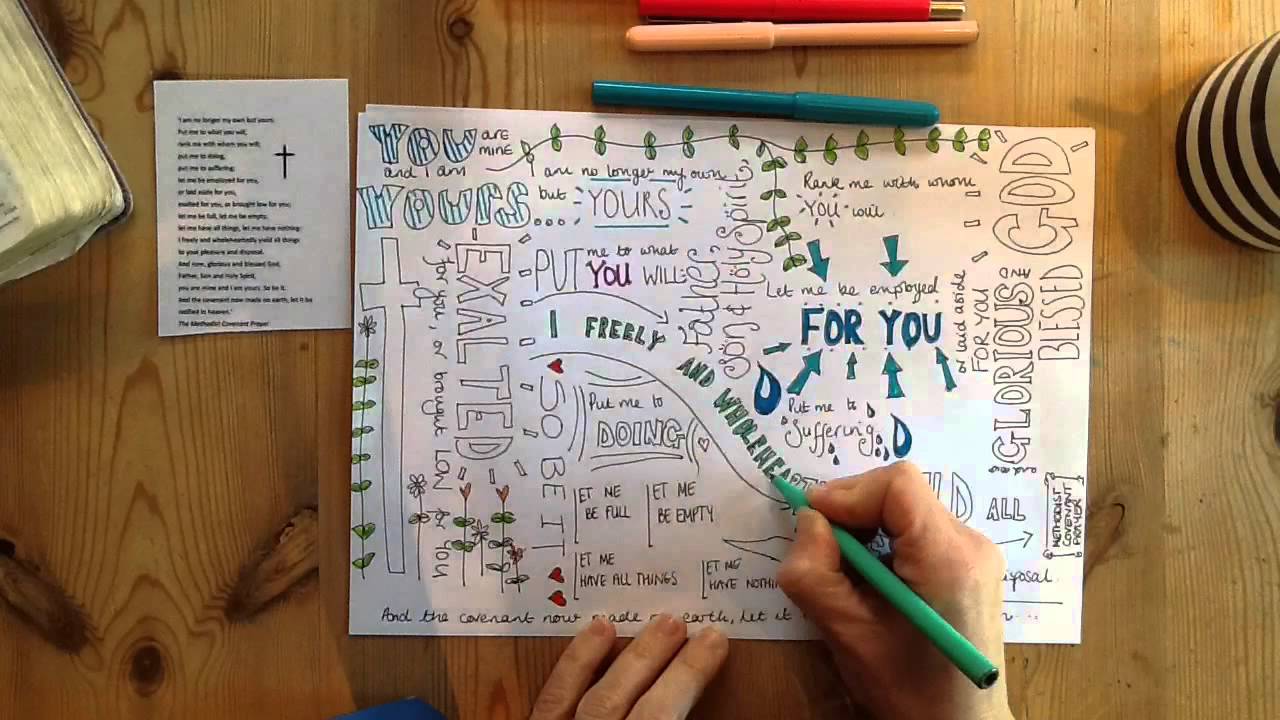 'I am no longer my own but yours.
Put me to what you will,
rank me with whom you will;
put me to doing,
put me to suffering;
let me be employed for you,
or laid aside for you,
exalted for you, or brought low for you;
let me be full, let me be empty,
let me have all things, let me have nothing:
I freely and wholeheartedly yield all things
to your pleasure and disposal.
And now, glorious and blessed God,
Father, Son and Holy Spirit,
you are mine and I am yours. So be it.
And the covenant now made on earth, let it be
ratified in heaven.'
The Methodist Covenant Prayer
YOU ARE MINE
and I am
YOURS...
I am no longer my own
but YOURS
PUT me to what
YOU WILL:
Father,
Son & Holy Spirit
Rank me with whom
YOU will
Let me be employed
FOR YOU
or laid aside
FOR YOU
GLORIOUS AND
BLESSED GOD
and now
EXALTED
for you, or brought LOW for you
I FREELY AND WHOLEHEART
SO BE IT
Put me to
DOING
Put me to
Suffering
LD ALL
LET ME
BE FULL
LET ME
BE EMPTY
LET ME
HAVE ALL THINGS
LET ME
HAVE NOTHIN
disposal.
METHODIST
COVENANT
PRAYER
And the covenant now made on earth, let it